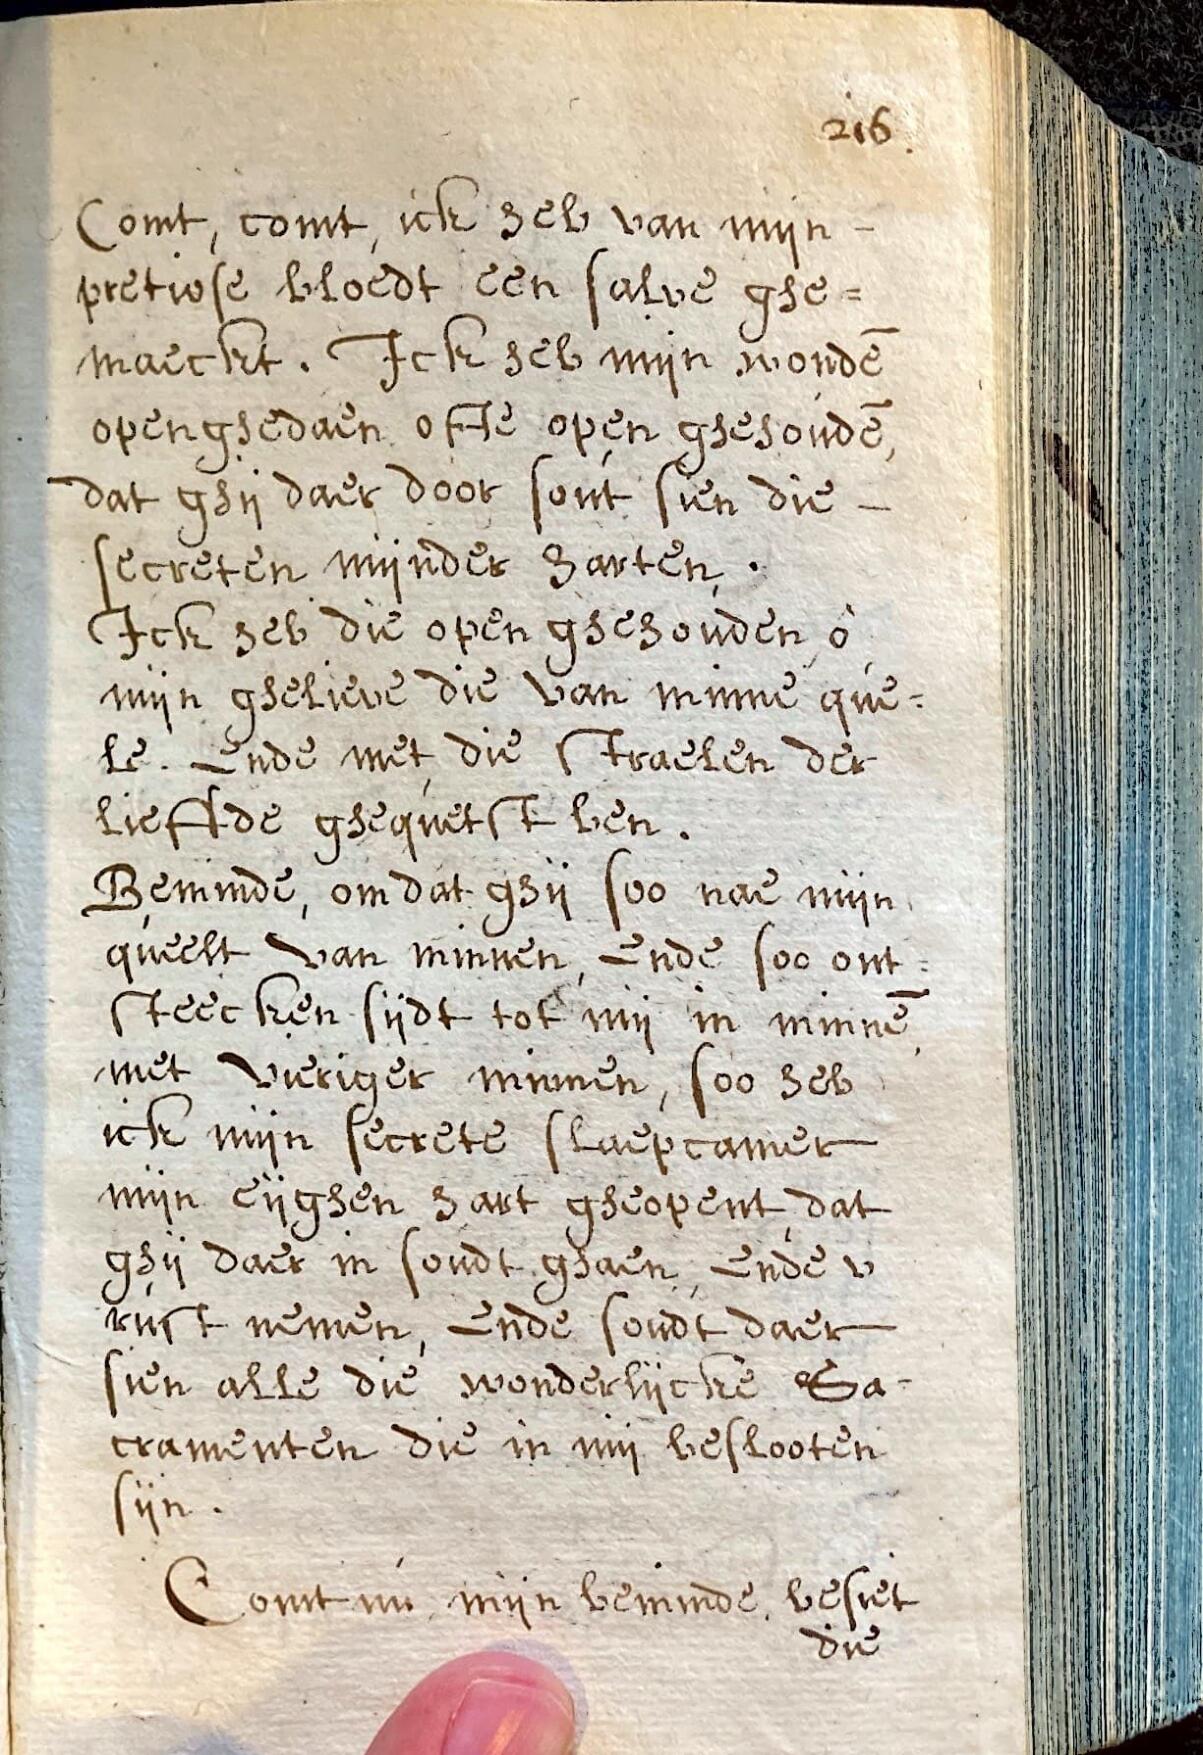 216.
Comt, comt, ick heb van mijn -
pretiose bloedt een salve ghe=
maeckt. Ick heb mijn wondē
openghedaen ofte open ghehoudē,
dat ghij daer door sout sien die -
secreten mijnder harten.
Ick heb die open ghehouden, ô
mijn ghelieve die van minne que=
le. Ende met die straelen der
lieffde ghequetst ben.
Beminde, om dat ghij soo nae mijn
queelt van minnen, Ende soo ont=
steecken sijdt tot mij in minnē,
met vieriger minnen, soo heb
ick mijn secrete slaepcamer
mijn eijghen hart gheopent, dat
ghij daer in soudt ghaen, Ende v
rust nemen, Ende soudt daer
sien alle die wonderlijcke Sa-
cramenten die in mij beslooten
sijn.
Comt nu mijn beminde, besiet
die